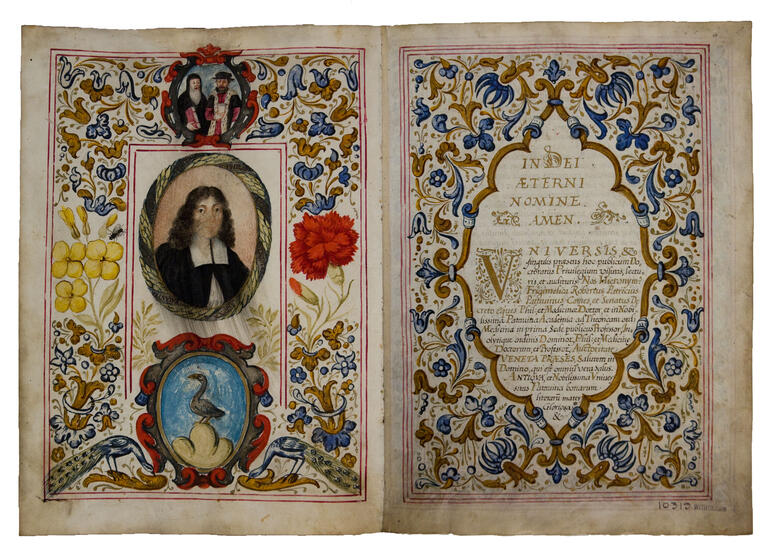 IN DEI
ÆTERNI
NOMINE
AMEN.
VNIVERSIS, &
singulis præsens hoc publicum Do,
ctoratus Privilegium visuris, lectu,
ris, et audituris Nos Hieronym9
Frigimelica Robertus Patricius
Patavinus Comes, et Senatus De
creto eques Phil: et Medicinæ Doctor, et in Nobi
lissima Patavina Academia ad Theoricam ordi:
Medicinæ in prima Sede publicus Professor,
ordinis Dominor, Phil: et Medicinæ
Doctorum, et Profissor, Auctoritate
VENETA PRÆSES Salutem in
Domino, qui est omniũ vera salus.
ANTIQUA, et Nobilissima Univer
sitas Patavina bonarum
literarũ mater
Gloriosa
&
10313